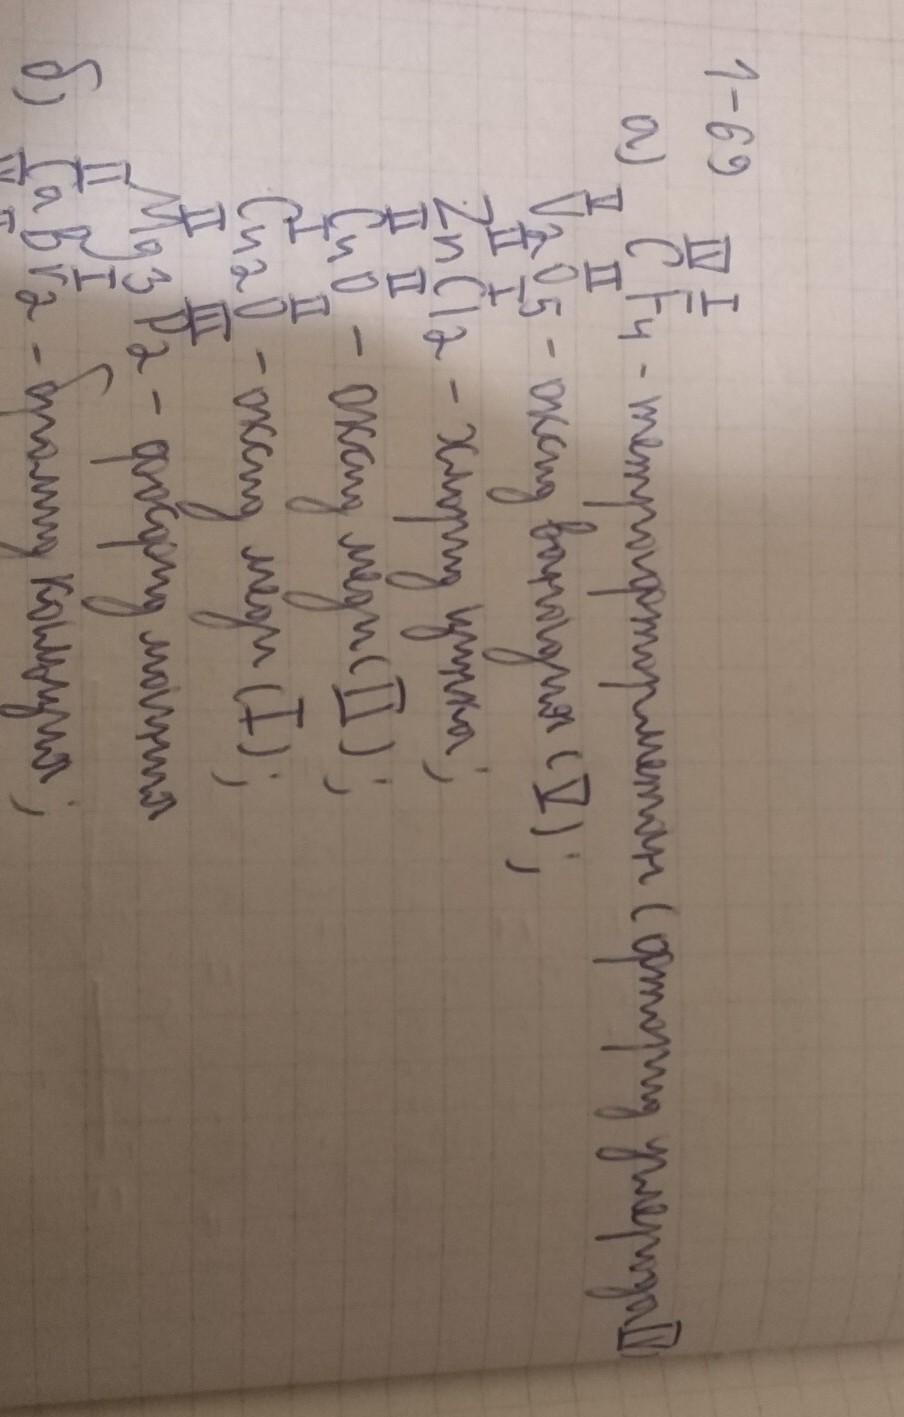 1-69
а) IV I
CF4 - тетрафторметан (фторид углерода IV)
V II
V2O5 - оксид ванадия (V);
II I
ZnCl2 - хлорид цинка;
II II
CuO - оксид меди (II);
I II
Cu2O - оксид меди (I);
II III
Mg3P2 - фосфид магния
б) II I
CaBr2 - бромид кальция;